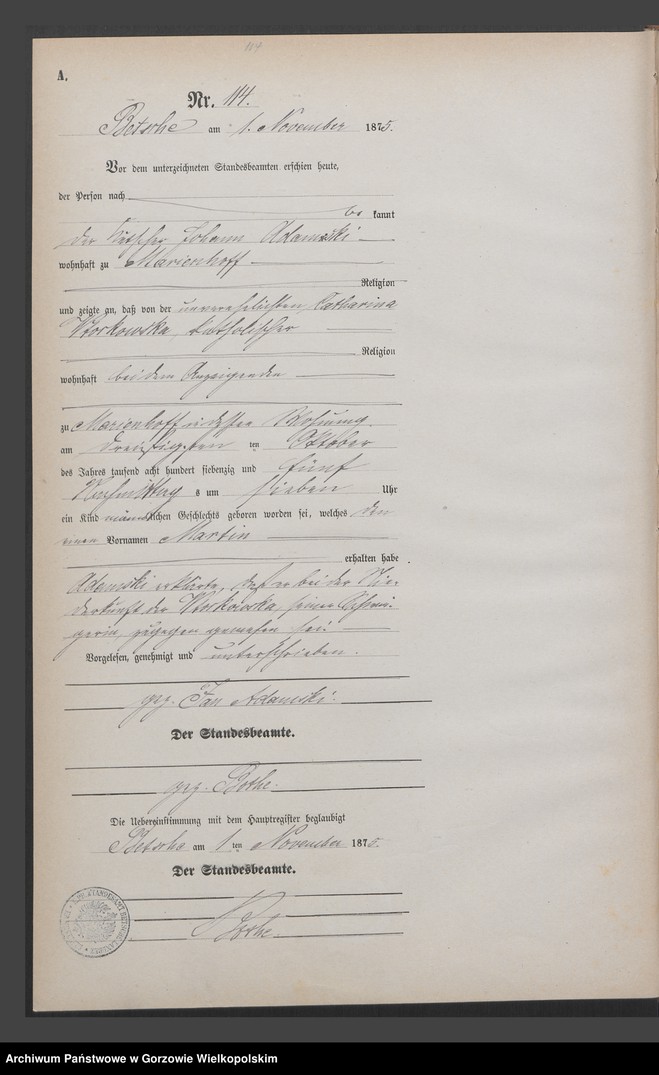 114
A.
Nr. 114.
Betsche am 1. November 1875.
Vor dem unterzeichneten Standesbeamten erschien heute,
der Person nach
be kannt
der Johann Adamski
wohnhaft zu Marienhoff
Religion
und zeigte an, daß von der unverehelichten Catharina
Workowska, katholischer
Religion
wohnhaft bei dem Anzeigenden
zu Marienhoff in dessen Wohnung
am dreißigsten ten Oktober
des Jahres tausend acht hundert siebenzig und fünf
Nachmittag s um sieben Uhr
ein Kind männlichen Geschlechts geboren worden sei, welches den
Vornamen Martin
erhalten habe.
Adamski erklärte, daß er bei der Nie-
derkunft der Workowska, seiner Schwä-
gerin, zugegen gewesen sei.
Vorgelesen, genehmigt und unterschrieben.
gez. Jan Adamski.
Der Standesbeamte.
gez. Bothe.
Die Uebereinstimmung mit dem Hauptregister beglaubigt
Betsche am 1 ten November 1875.
Der Standesbeamte.
Bothe
Archiwum Państwowe w Gorzowie Wielkopolskim